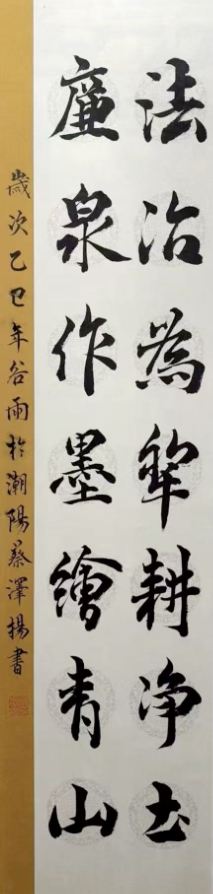 法治為犂耕净土
廉泉作墨繪青山
歲次乙巳年谷雨於潮陽蔡澤揚書